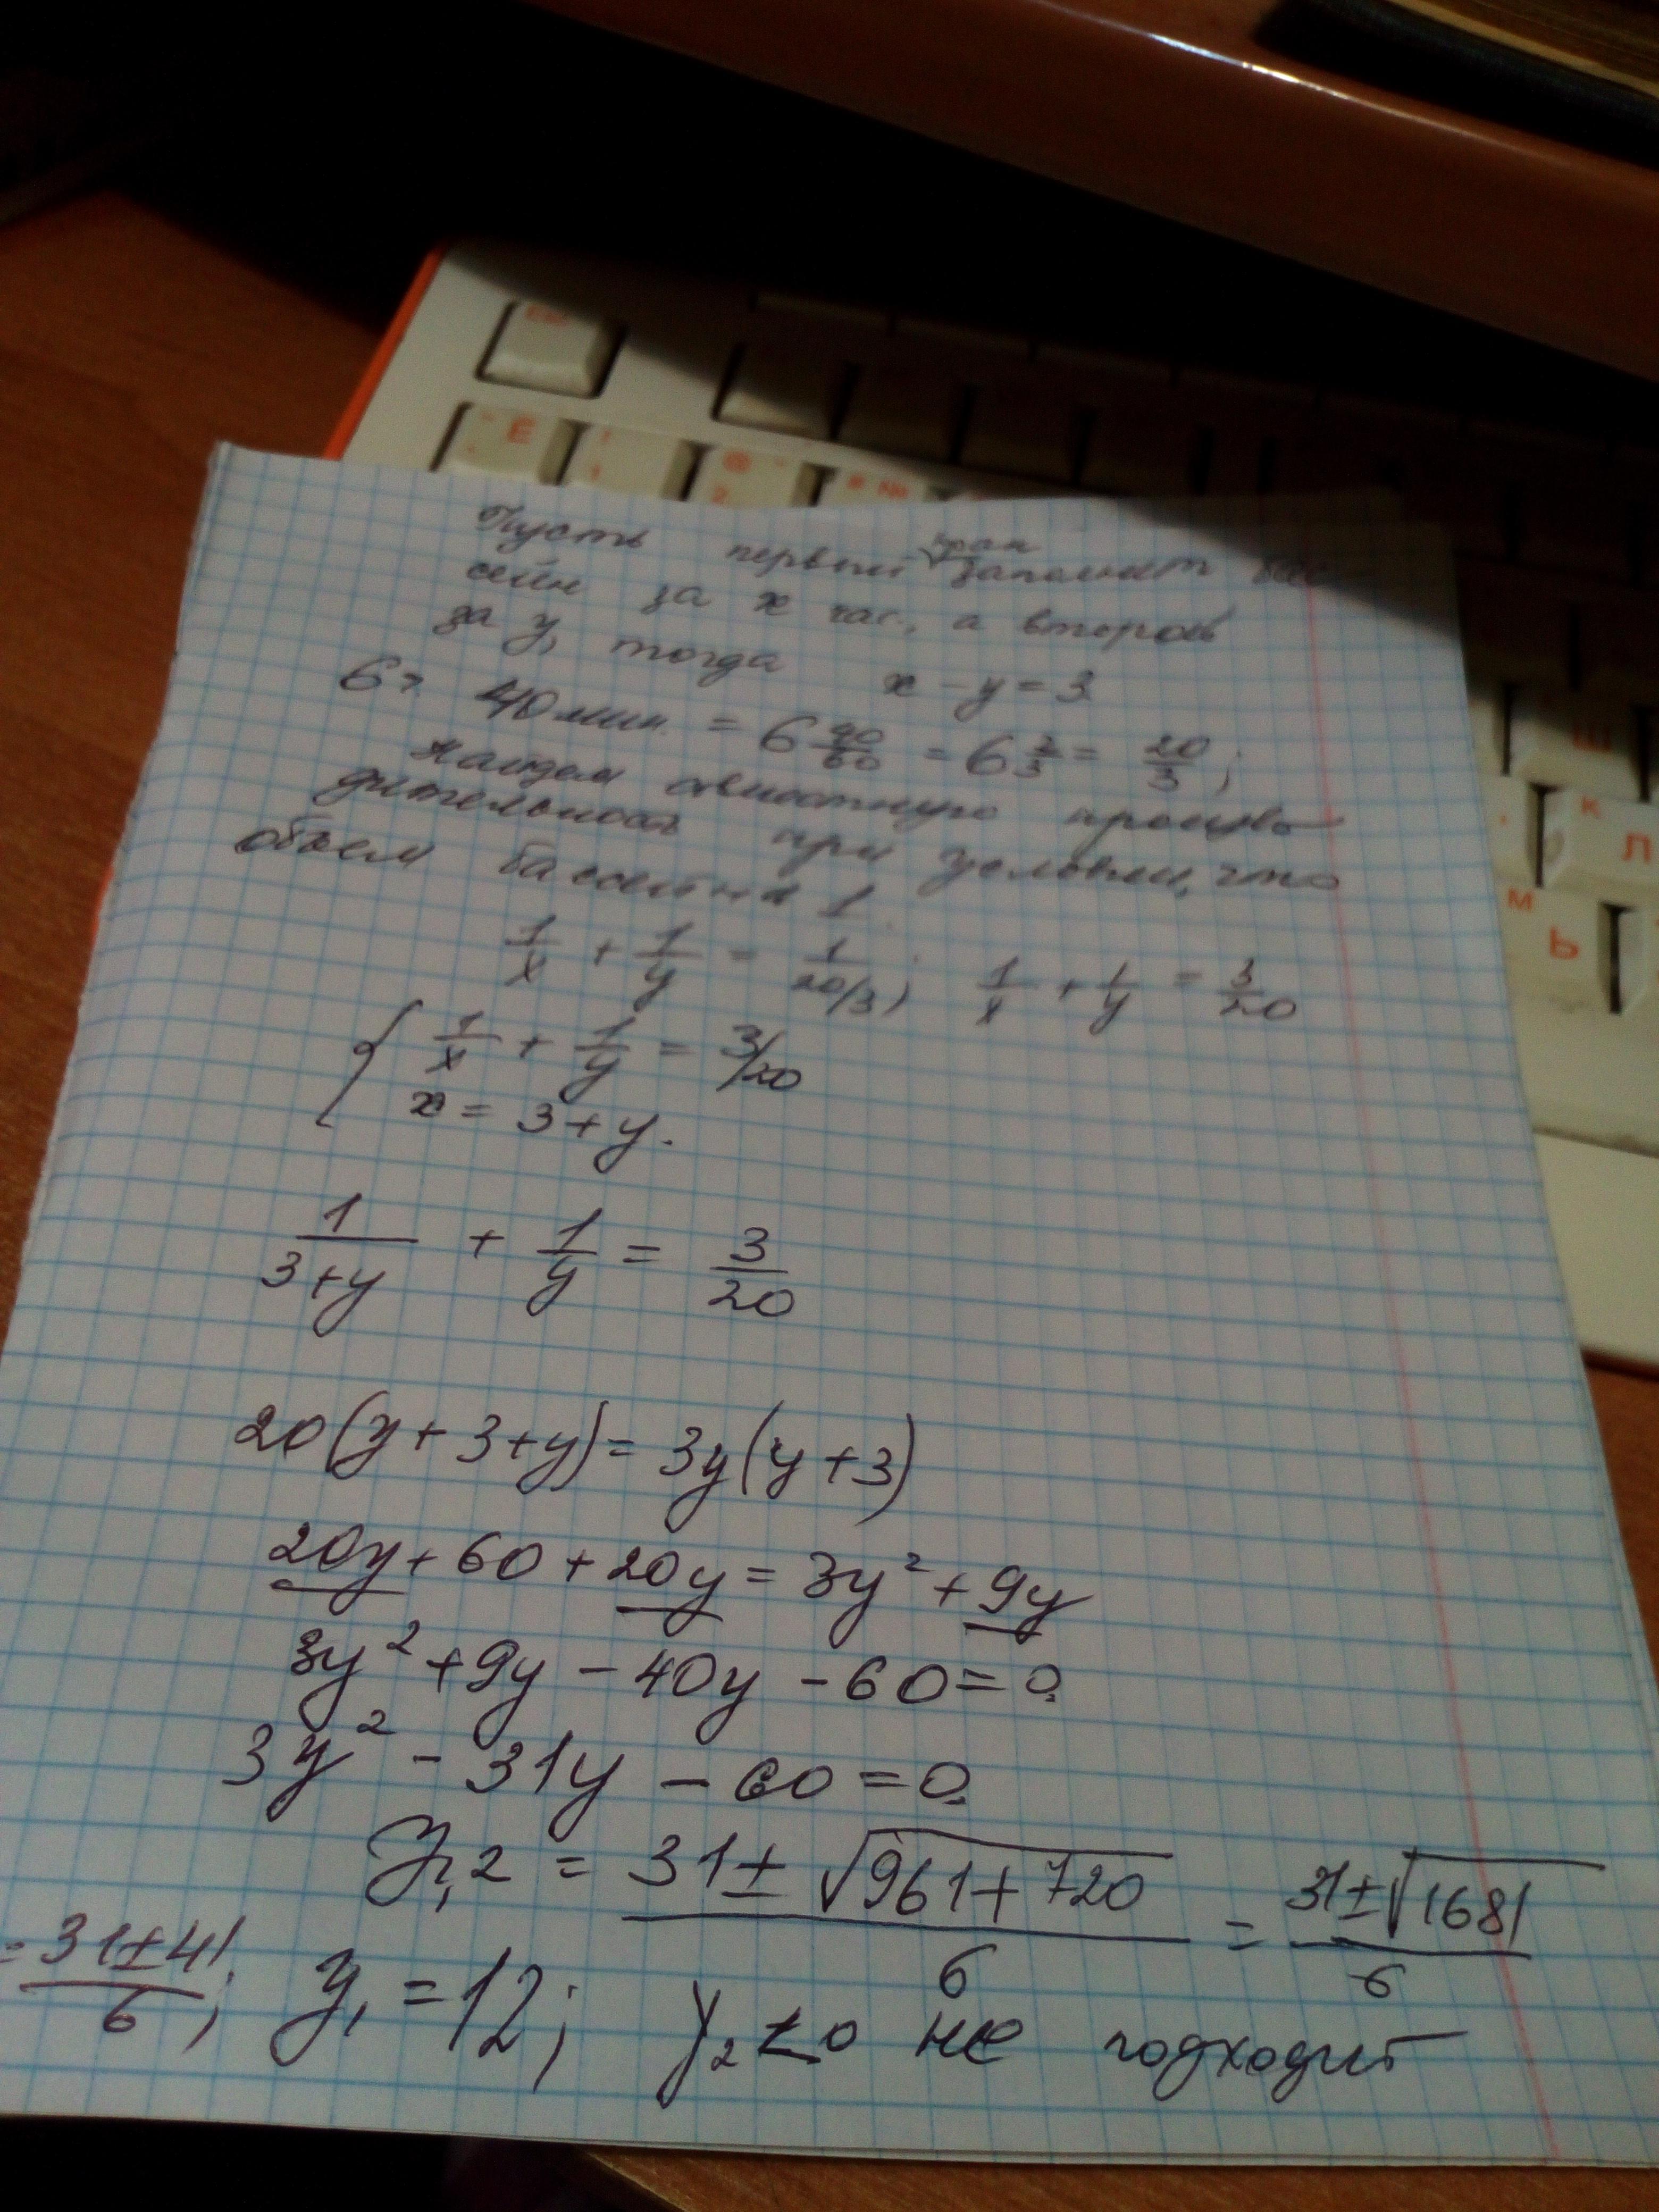 Пусть первый кран заполнит бас-
сейн за x час., а второй
за y, тогда x - y = 3
6ч. 40 мин. = 6 40/60 = 6 2/3 = 20/3;
Найдем совместную произво-
дительность при условии, что
объем бассейна 1.
1/x + 1/y = 1/(20/3); 1/x + 1/y = 3/20
{ 1/x + 1/y = 3/20
x = 3 + y.
1/(3+y) + 1/y = 3/20
20(y + 3 + y) = 3y(y + 3)
20y + 60 + 20y = 3y² + 9y
3y² + 9y - 40y - 60 = 0.
3y² - 31y - 60 = 0.
y₁,₂ = (31 ± √(961 + 720))/6 = (31 ± √1681)/6
= (31 ± 41)/6; y₁ = 12; y₂ < 0 не подходит
Esc
Ё
!
1
@
2
№
Ш
К
Л
М
Ь